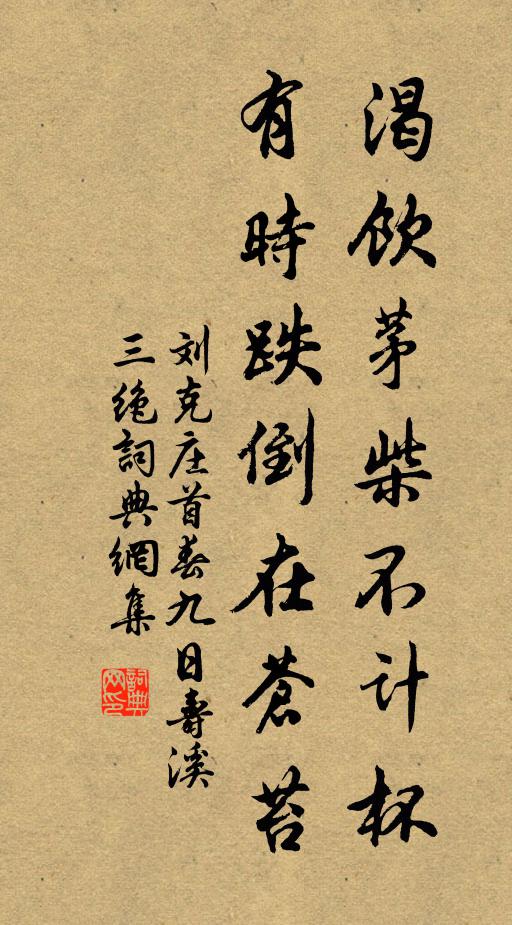 渴飲茅柴不計杯
有時跌倒在蒼苔
刘克庄首春九日壽溪
三绝詞典網集
詞典网印